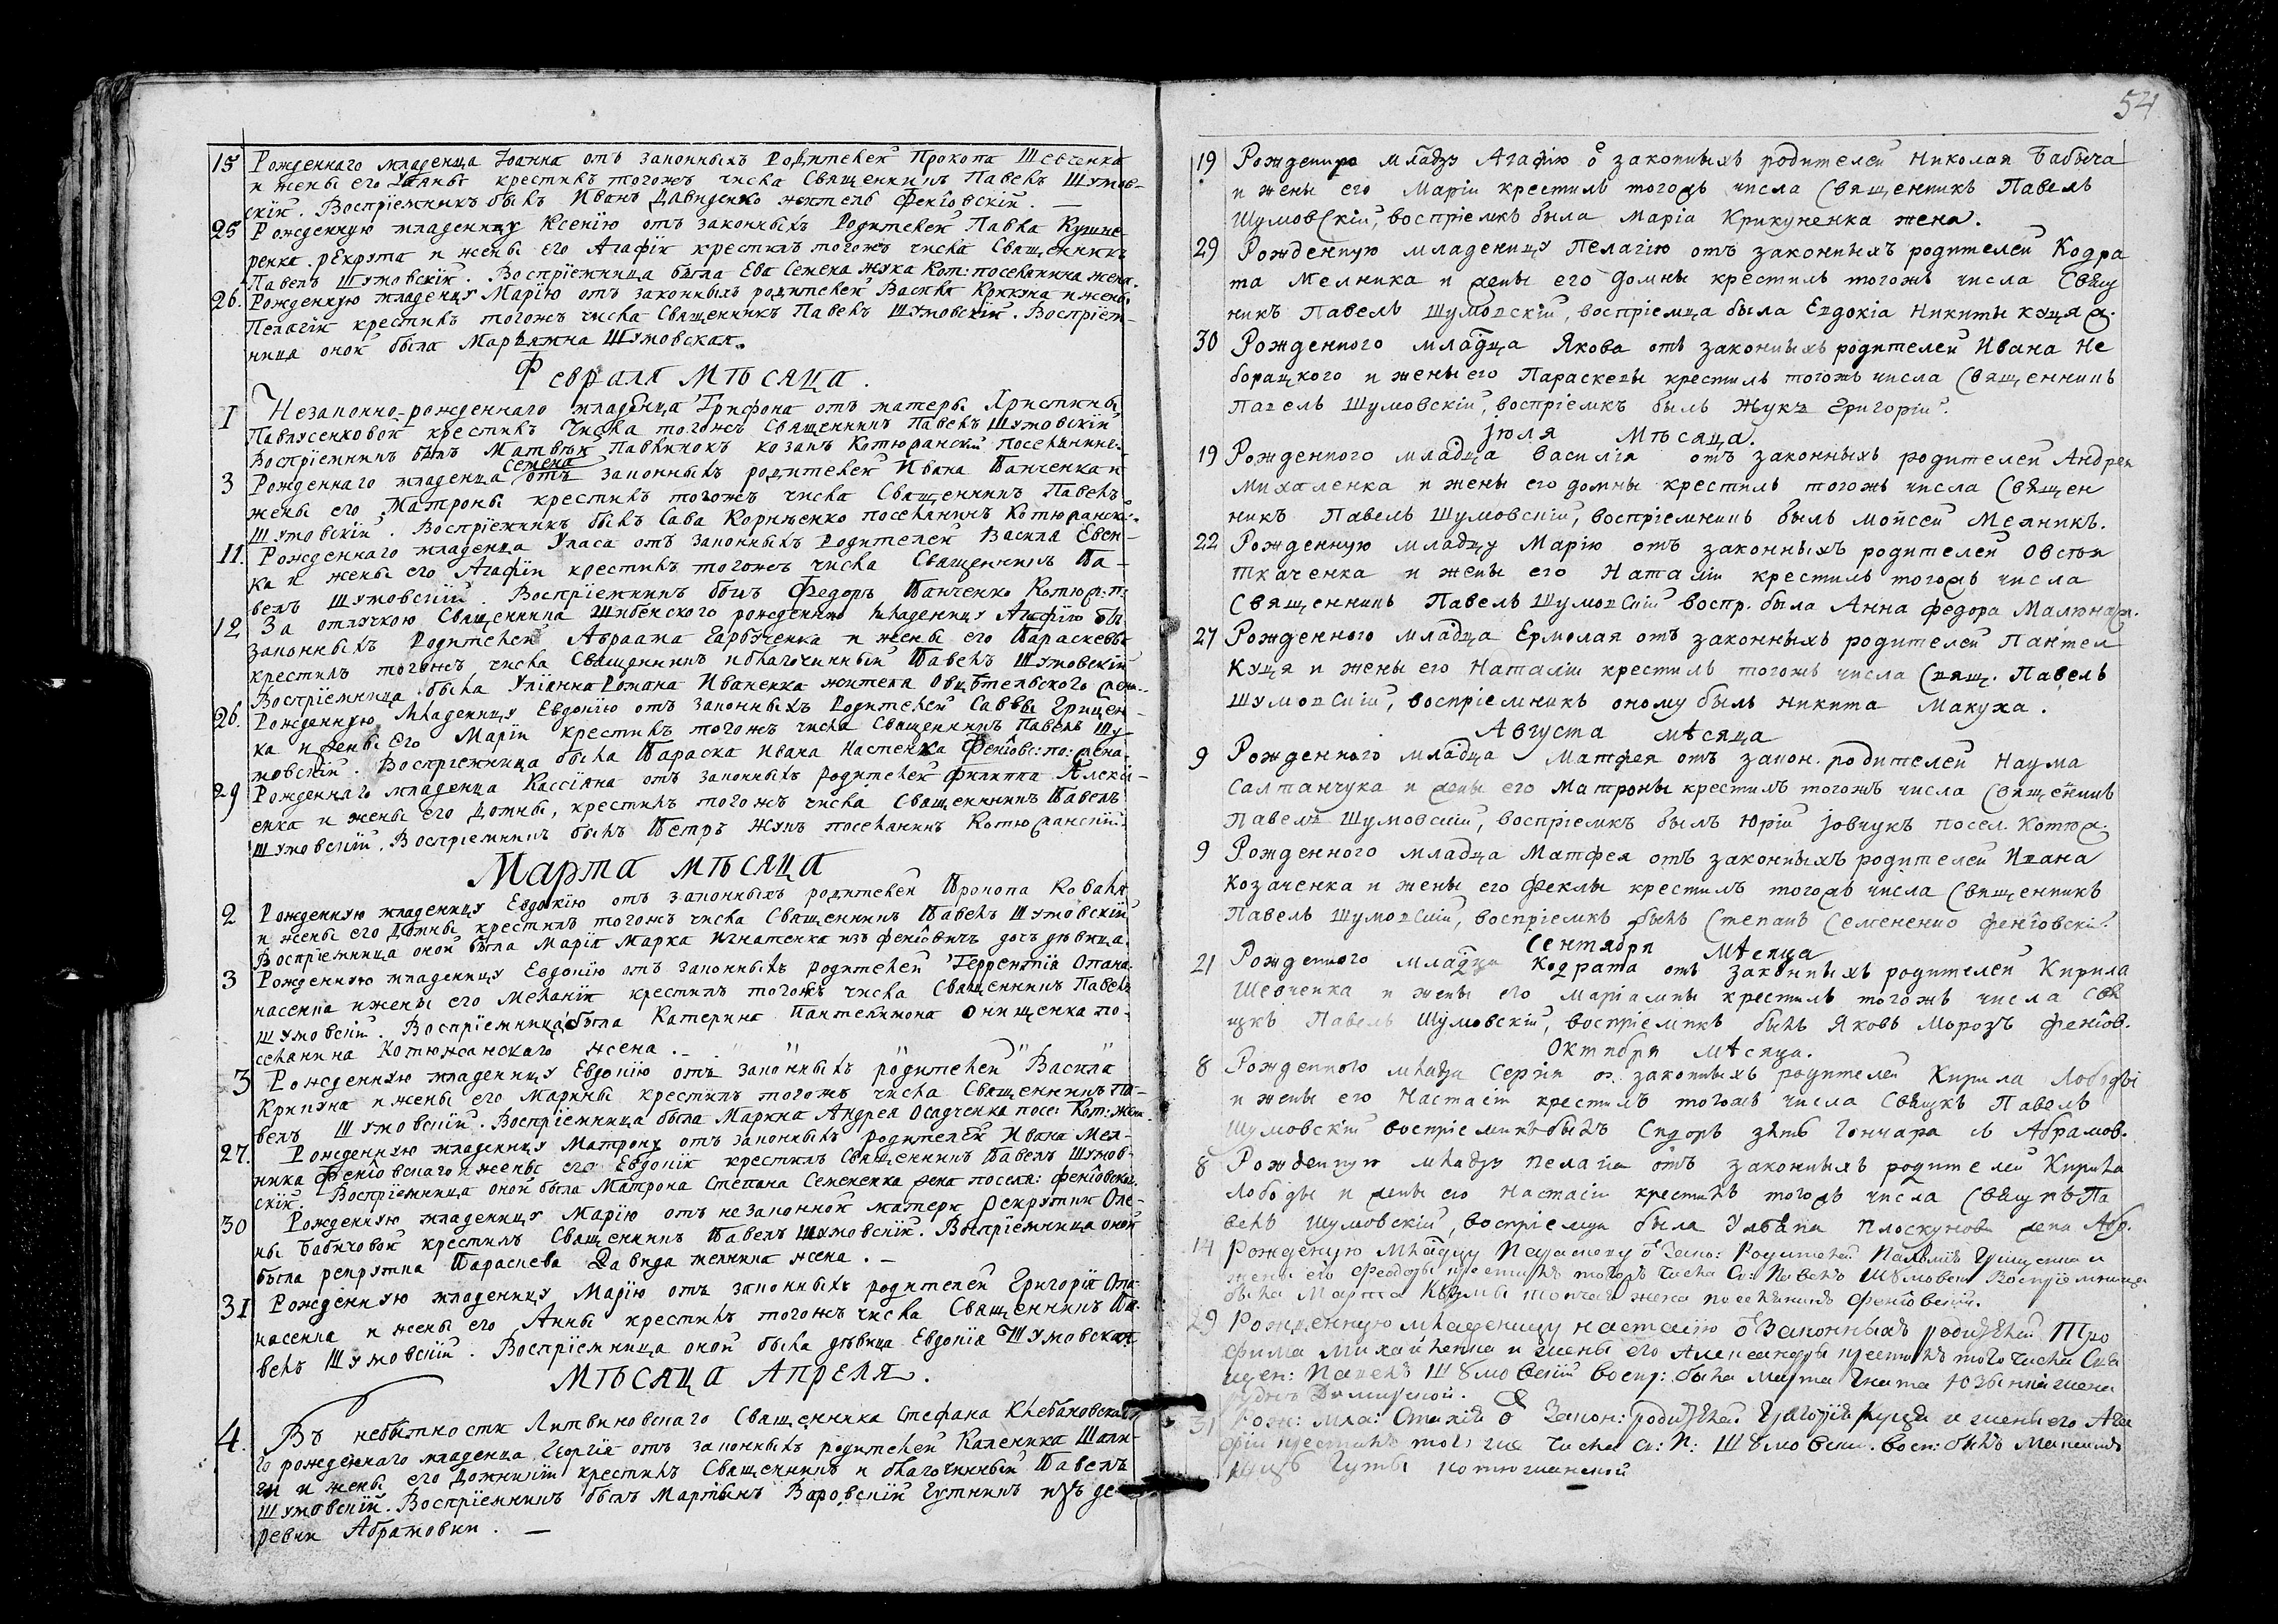 15 Рожденнаго младенца Іоанна отъ законныхъ Родителей Прокопа Шевченка
и жены его крестилъ тогожъ числа Священникъ Павелъ Шумов-
скій. Воспріемникъ былъ Иванъ Давиденко житель Фенговскій. —
25 Рожденную младеницу Ксенію отъ законныхъ Родителей Павла Кушне
ренка рекрута и жены его Агафіи крестилъ тогожъ числа Священникъ
Павелъ Шумовскій. Воспріемница была Ева Семена Жука Кот: поселянина жена.
26. Рожденную младеницу Марію отъ законныхъ родителей Василя Крикуна и жены
Пелагіи крестилъ тогожъ числа Священникъ Павелъ Шумовскій. Воспріем-
ница оной была Маріамна Шумовская.
Февраля мѣсяца.
1 Незаконно-рожденнаго младенца Трифона отъ матеры Христины
Павлусенковой крестилъ числа тогожъ Священникъ Павелъ Шумовскій
Воспріемникъ былъ Матвѣй Павлинокъ козакъ Котюжанскій поселянинъ
3 Рожденнаго младенца Семена отъ законныхъ родителей Ивана Панченка и
жены его Матроны крестилъ тогожъ числа Священникъ Павелъ
Шумовскій. Воспріемникъ былъ Сава Корнѣенко поселянинъ Котюжанскій.
11. Рожденнаго младенца Уласа отъ законныхъ Родителей Васила Евсен-
ка и жены его Агафіи крестилъ тогожъ числа Священникъ Па-
велъ Шумовскій. Воспріемникъ былъ Федоръ Панченко Котюж: п:
12 За отлучкою Священника Шибенского рожденную младеницу Агафію отъ
законныхъ Родителей Авраама Гарбученка и жены его Параскевы
крестилъ тогожъ числа Священникъ и благочинный Павелъ Шумовскій
Воспріемница была Уліянна Романа Иваненка жителя
26. Рожденную Младеницу Евдокію отъ законныхъ Родителей Саввы Грицен-
ка и жены его Маріи крестилъ тогожъ числа Священникъ Павелъ Шу-
мовскій. Воспріемница была Параска Ивана Настенка Фенговс: по: жена.
29 Рожденнаго младенца Кассіяна отъ законныхъ родителей Филиппа Алексѣ-
енка и жены его Домны, крестилъ тогожъ числа Священникъ Павелъ
Шумовскій. Воспріемникъ былъ Петръ Жукъ поселянинъ Котюжанскій.
Марта мѣсяца
2 Рожденную младеницу Евдокію отъ законныхъ родителей Прокопа Коваля
и жены его Домны крестилъ тогожъ числа Священникъ Павелъ Шумовскій
Воспріемница оной была Марія Марка Игнатенка изъ Фенговичъ дочь дѣвица.
3 Рожденную младеницу Евдокію отъ законныхъ родителей Геррентія Опана-
насенка и жены его Меланіи крестилъ тогожъ числа Священникъ Павелъ
Шумовскій. Воспріемница была Катерина Пантелимона Онищенка по-
селянина Котюжанскаго жена.
3 Рожденную младеницу Евдокію отъ законныхъ родителей Василя
Крикуна и жены его Марины крестилъ тогожъ числа Священникъ Па-
велъ Шумовскій. Воспріемница была Марина Андрея Осадченка посе: Кот: жена.
27. Рожденную младеницу Матрону отъ законныхъ родителей Ивана Мел-
ника Фенговскаго и жены его Евдокіи крестилъ Священникъ Павелъ Шумов-
скій. Воспріемница оной была Матрона Степана Семененка жена посел: Фенговска.
30 Рожденную младеницу Марію отъ незаконной матери рекрутки Оле-
ны Бабичовой крестилъ Священникъ Павелъ Шумовскій. Воспріемница оной
была рекрутка Параскева Давида мелника жена. —
31 Рожденную младеницу Марію отъ законныхъ родителей Григорія Опа-
насенка и жены его Анны крестилъ тогожъ числа Священникъ Па-
велъ Шумовскій. Воспріемница оной была дѣвица Евдокія Шумовская.
Мѣсяца Апреля.
4. Въ небытности Литвиновскаго Священника Стефана Клебановска-
го рожденнаго младенца Георгія отъ законныхъ родителей Каленика Шали-
ги и жены его Домникіи крестилъ Священникъ и благочинный Павелъ
Шумовскій. Воспріемникъ былъ Мартынъ Варовскій Гутникъ изъ де-
ревни Абрамовки. —
54
19 Рожденную младцу Агафію ѿ законныхъ родителей Николая Бабыча
и жены его Маріи крестилъ тогожъ числа Священникъ Павелъ
Шумовскій, воспріемкъ была Маріа Крикуненка жена.
29 Рожденную младеницу Пелагію отъ законныхъ родителей Кодра
та Мелника и жены его Домны крестилъ тогожъ числа Свящ
никъ Павелъ Шумовскій, воспріемца была Евдокіа Никиты Куця ж.
30 Рожденного младца Якова отъ законныхъ родителей Ивана Не
борацкого и жены его Параскевы крестилъ тогожъ числа Священникъ
Павелъ Шумовскій, воспріемкъ былъ Жукъ Григорій.
Іюля мѣсяца.
19 Рожденного младца Василія отъ законныхъ родителей Андрея
Михаленка и жены его Домны крестилъ тогожъ числа Священ
никъ Павелъ Шумовскій, воспріемникъ былъ Мойсей Мелникъ.
22 Рожденную младцу Марію отъ законныхъ родителей Овсѣя
Ткаченка и жены его Наталіи крестилъ тогожъ числа
Священникъ Павелъ Шумовскій воспр. была Анна Федора Малюка ж.
27 Рожденного младца Ермолая отъ законныхъ родителей Пантел
Куця и жены его Наталіи крестилъ тогожъ числа Свящ. Павелъ
Шумовскій, воспріемникъ оному былъ Никита Макуха.
Августа мѣсяца
9 Рожденного младца Матфея отъ закон. родителей Наума
Салтанчука и жены его Матроны крестилъ тогожъ числа Священникъ
Павелъ Шумовскій, воспріемкъ былъ Юрій Іовчукъ посел. Котюж.
9 Рожденного младца Матфея отъ законныхъ родителей Ивана
Козаченка и жены его Феклы крестилъ тогожъ числа Священникъ
Павелъ Шумовскій, воспріемкъ былъ Степанъ Семененко Фенговскій.
Сентября мѣсяца
21 Рожденного младца Кодрата отъ законныхъ родителей Кирила
Шевченка и жены его Маріамны крестилъ тогожъ числа Свя
щкъ Павелъ Шумовскій, воспріемкъ былъ Яковъ Морозъ Фенгов.
Октября мѣсяца.
8 Рожденного младца Сергія от законныхъ родителей Кирила Лободы
и жены его Настасіи крестилъ тогожъ числа Свящкъ Павелъ
Шумовскій воспріемникъ былъ Сидоръ зять Гончара Абрамов.
8 Рожденную младцу Пелагіа отъ законныхъ родителей Кирила
Лободы и жены его Настасіи крестилъ тогожъ числа Свящкъ Па
велъ Шумовскій, воспріемца была Уліана Плоскунов жена Абр.
14 Рожденую младцу Параскеву ѿ Зако: Родителей Грищенка и
жены его Феодоры крестилъ тогожъ числа Св: Павелъ Шумовскій Воспріемница
была Марта Кузмы жена поселянинъ Фенговскій.
29 Рожденную младеницу Настасію ѿ Законныхъ родителей Тро
фима Михайленка и жены его Александры крестилъ того числа Свя
щен: Павелъ Шумовскій воспр: была Марта Гната жена
31 Рож: мла: ѿ Закон: родителей Григорія Куця и жены его Ага
фіи крестилъ того же числа С: П: Шумовскій. восп: былъ
Гуты Котюжанской